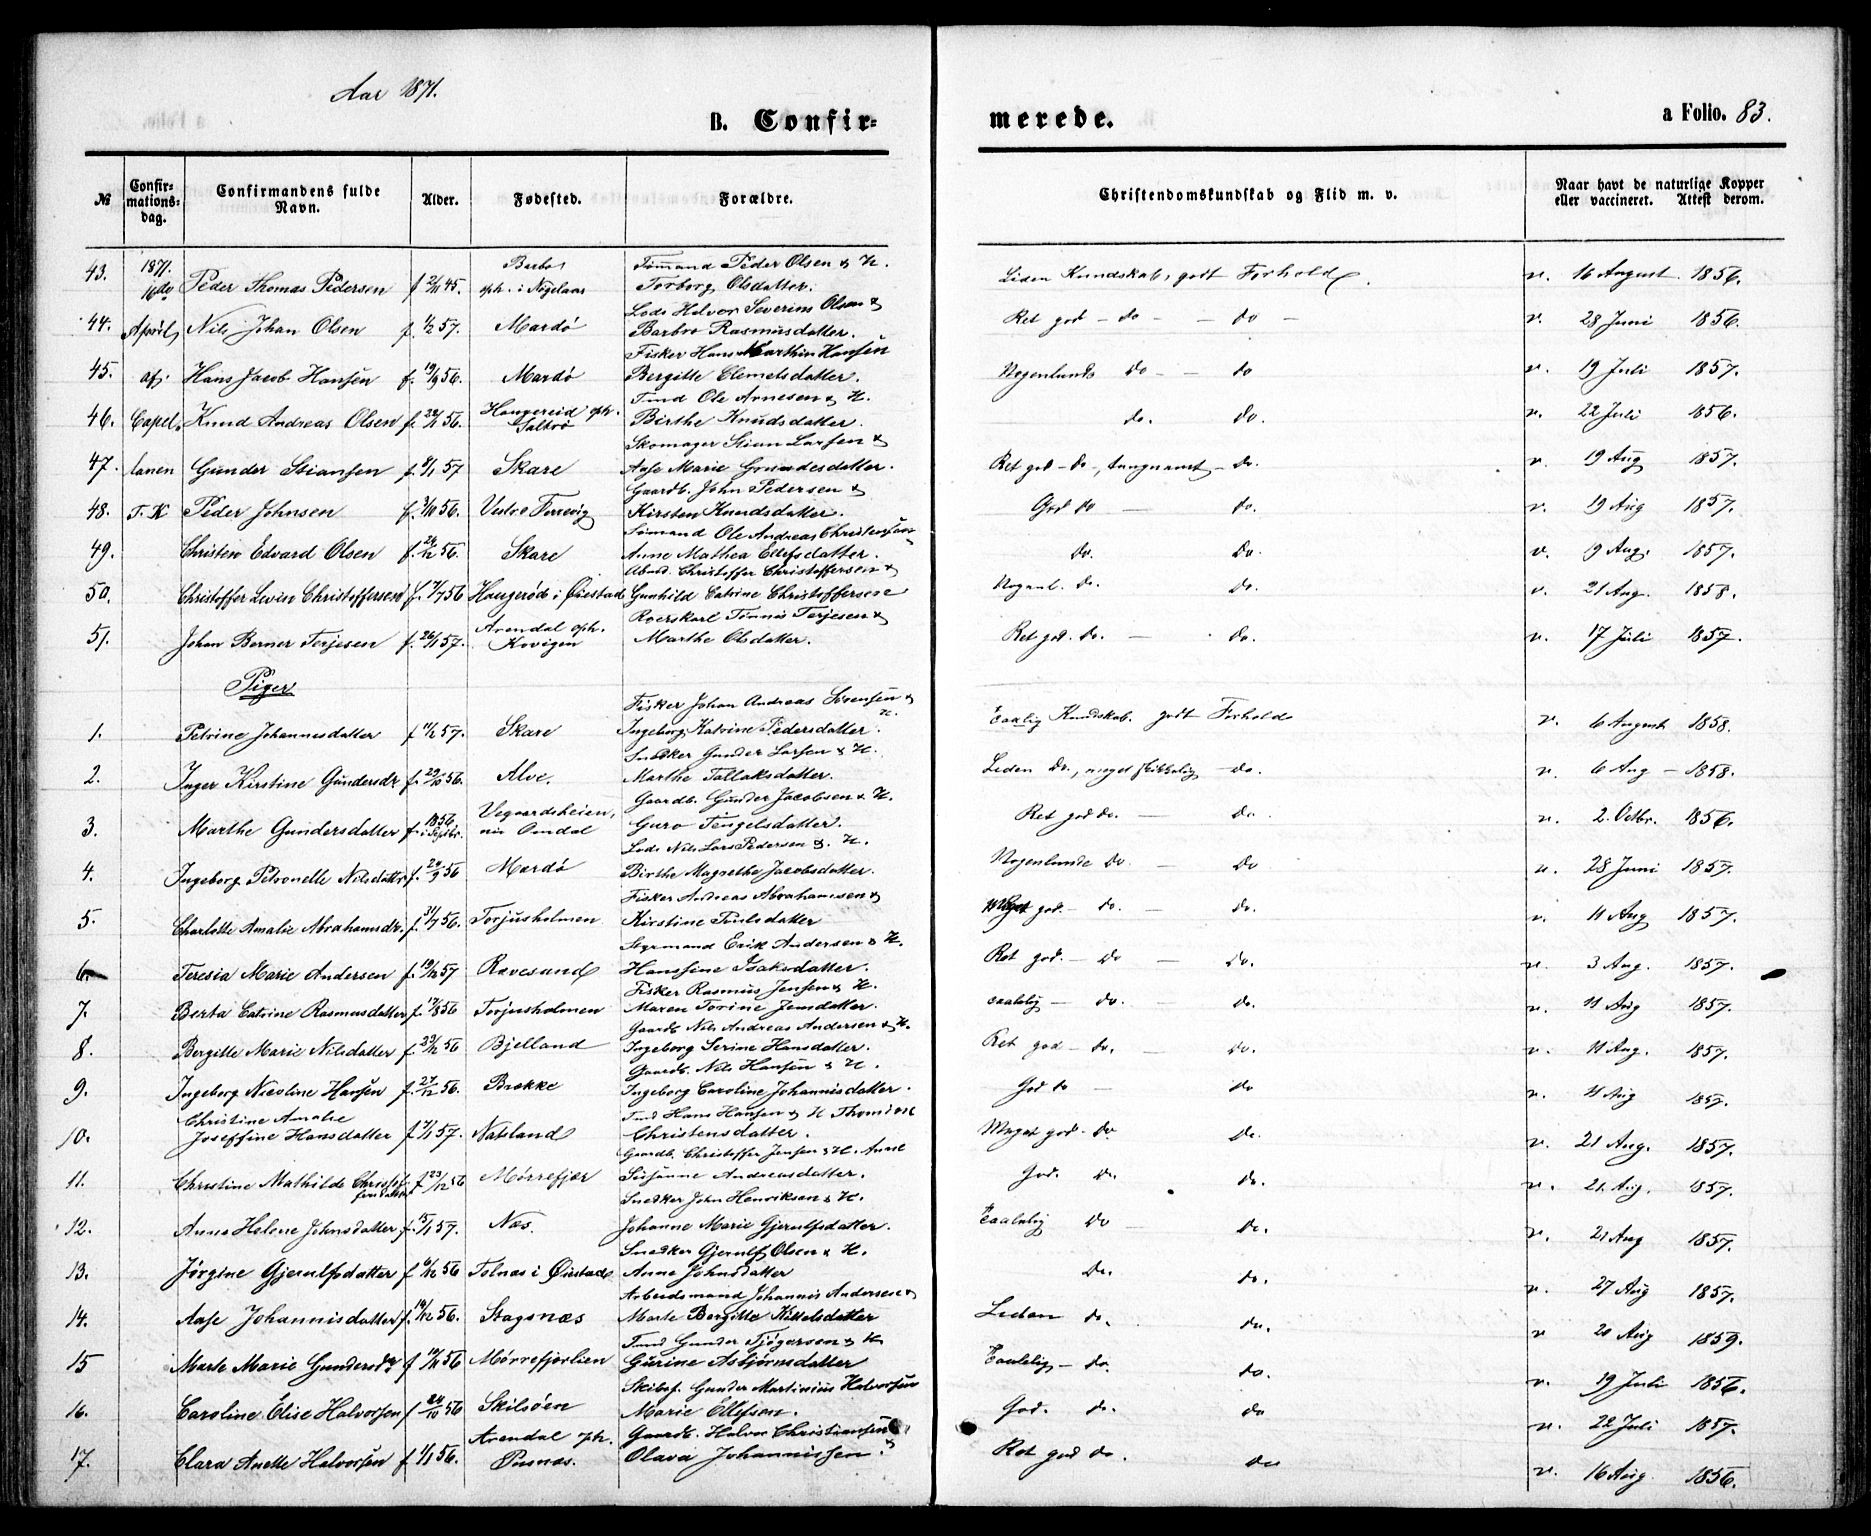 Aar 1871.
B. Confirmerede.
a Folio. 83.
№ Confirmationsdag. Confirmandens fulde Navn. Alder. Fødested. Forældre. Christendomskundskab og Flid m. v. Naar havt de naturlige Kopper eller vaccineret. Attest derom.
1871.
16de
April
af
Capellanen
T. K
43. Peder Thomas Pedersen f 2/11 45. Barbo oph. i Sømand Peder Olsen & H. Torborg Olsdatter. Liden Kundskab, godt Forhold v. 16 August 1856.
44. Nils Johan Olsen f. 1/2 57. Mærdø Lods Halvor Severin Olsen & Barbro Rasmusdatter. Ret god – do – do – v. 28 Juni 1856.
45. Hans Jacob Hansen f. 19/9 56. Mærdø Fisker Hans Marthin Hansen Bergitte Clemetsdatter. Nogenlunde do – do v. 19 Juli 1857.
46. Knud Andreas Olsen f. 56. Haugereid oph. Saltrø Tmd Ole Arnesen & H. Birthe Knudsdatter. do. do. v. 22 Juli 1856.
47. Gunder Stiansen f. 57 Skare Skomager Stian Larsen & Aase Marie Gundersdatter. Ret god – do –, tungnemt – do. v. 19 Aug 1857.
48. Peder Johnsen f. 3/10 56. Vestre Torrevig Gaardb. John Pedersen & Kirsten Knudsdatter. God do — do. v. 19 Aug 1857.
49. Christen Edvard Olsen f. 24/12 56. Skare Sømand Ole Andreas Christensen Anne Mathea Ellefsdatter. do. do. v. 19 Aug. 1857.
50. Christoffer Levin Christoffersen f. 56 Haugerød i Øiestad Arbmd. Christoffer Christoffersen & Gunhild Catrine Christoffersen Nogenl. do. do. v. 21 Aug. 1858.
51. Johan Berner Terjesen f. 26/1 57. Arendal oph. Kovigen Roerskarl Tønnes Terjesen & Marthe Olsdatter. Ret god. do. — do. v. 17 Juli 1857.
Piger
1. Petrine Johannesdatter f 11/2 57. Skare Fisker Johan Andreas Sørensen & H. Ingeborg Katrine Pedersdatter. Taalig Kundskab. godt Forhold v. 6 August 1858.
2. Inger Kirstine Gundersdr f. 29/10 56. Alve. Snedker Gunder Larsen & H. Marthe Tallaksdatter. Liden do., meget skikkelig – do. v. 6 Aug – 1858.
3. Marthe Gundersdatter f. 1856. i Septbr. Vegaardsheien, Omdal Gaardb. Gunder Jacobsen & H. Guro Tengelsdatter. Ret god do. — do. v. 2. Octbr. 1856.
4. Ingeborg Petronelle Nilsdatter f. 24/9 56 Mærdø Lods Nils Lars Pedersen & H. Birthe Magrethe Jacobsdatter. Nogenlunde do. — do v. 28 Juni 1857.
5. Charlotte Amalie Abrahamsdr. f. 31/7 56. Torjusholmen Fisker Andreas Abrahamsen & Kirstine Poulsdatter god. – do. — do. v. 11 Aug 1857.
6. Teresia Marie Andersen f. 19/12 57 Rævesand Styrmand Erik Andersen & H. Hansine Isaksdatter. Ret god. – do — do. v. 3 Aug. 1857.
7. Berta Catrine Rasmusdatter f. 17/8 56 Torjusholmen Fisker Rasmus Jensen & H. Maren Torine Jensdatter. taalelig – do. — do. v. 11 Aug 1857.
8. Bergitte Marie Nilsdatter f. 29/12 56 Bjelland Gaardb. Nils Andreas Andersen & H. Ingeborg Serine Hansdatter. Ret god – do. — do. v. 11 Aug. 1857.
9. Ingeborg Nicoline Hansen f. 27/12 56. Brække Gaardb. Nils Hansen & H. Ingeborg Caroline Johannisdatter. God do — do v. 11 Aug 1857.
10. Christine Amalie Joseffine Hansdatter f 57. Natsland Tmd Hans Hansen & H Thomine Christensdatter. Meget god – do do. v. 21 Aug. 1857.
11. Christine Mathilde f 23/12 56 Mørrefjær Gaardb. Christoffer Jensen & H. Anne Susanne Andreasdatter. God. do. do. v. 21. Aug. 1857.
12. Anne Helene Johnsdatter f. 15/1 57. Næs. Snedker John Henriksen & H. Johanne Marie Gjerulfsdatter. Taalelig do — do. v. 21 Aug 1857.
13. Jørgine Gjerulfsdatter f 6/12 56 Tolnæs i Øiestad Snedker Gjerulf Olsen & H. Anne Johnsdatter do. do. v. 27 Aug 1857.
14. Aase Johannisdatter f. 14/12 56. Stagsnæs Arbeidsmand Johannis Andersen & Marte Bergitte Kittelsdatter Liden do. do. v 20 Aug 1859.
15 Marte Marie Gundersdr f 11/11 56 Mørrefjærlien Tmd Gunder Tjøgersen & H Gurine Asbjørnsdatter Taalelig – do. do. v. 19 Juli 1856.
16. Caroline Elise Halvorsen f 24/10 56 Skilsøen Skibsf. Gunder Martinius Halvorsen Marie Ellefsen. God. do. do v. 22 Juli 1857.
17. Clara Anette Halvorsen f 1/1 56. Arendal oph. Pusnæs. Gaardb. Halvor Christiansen & Olava Johannissen. Ret god do. do v. 16 Aug. 1856.